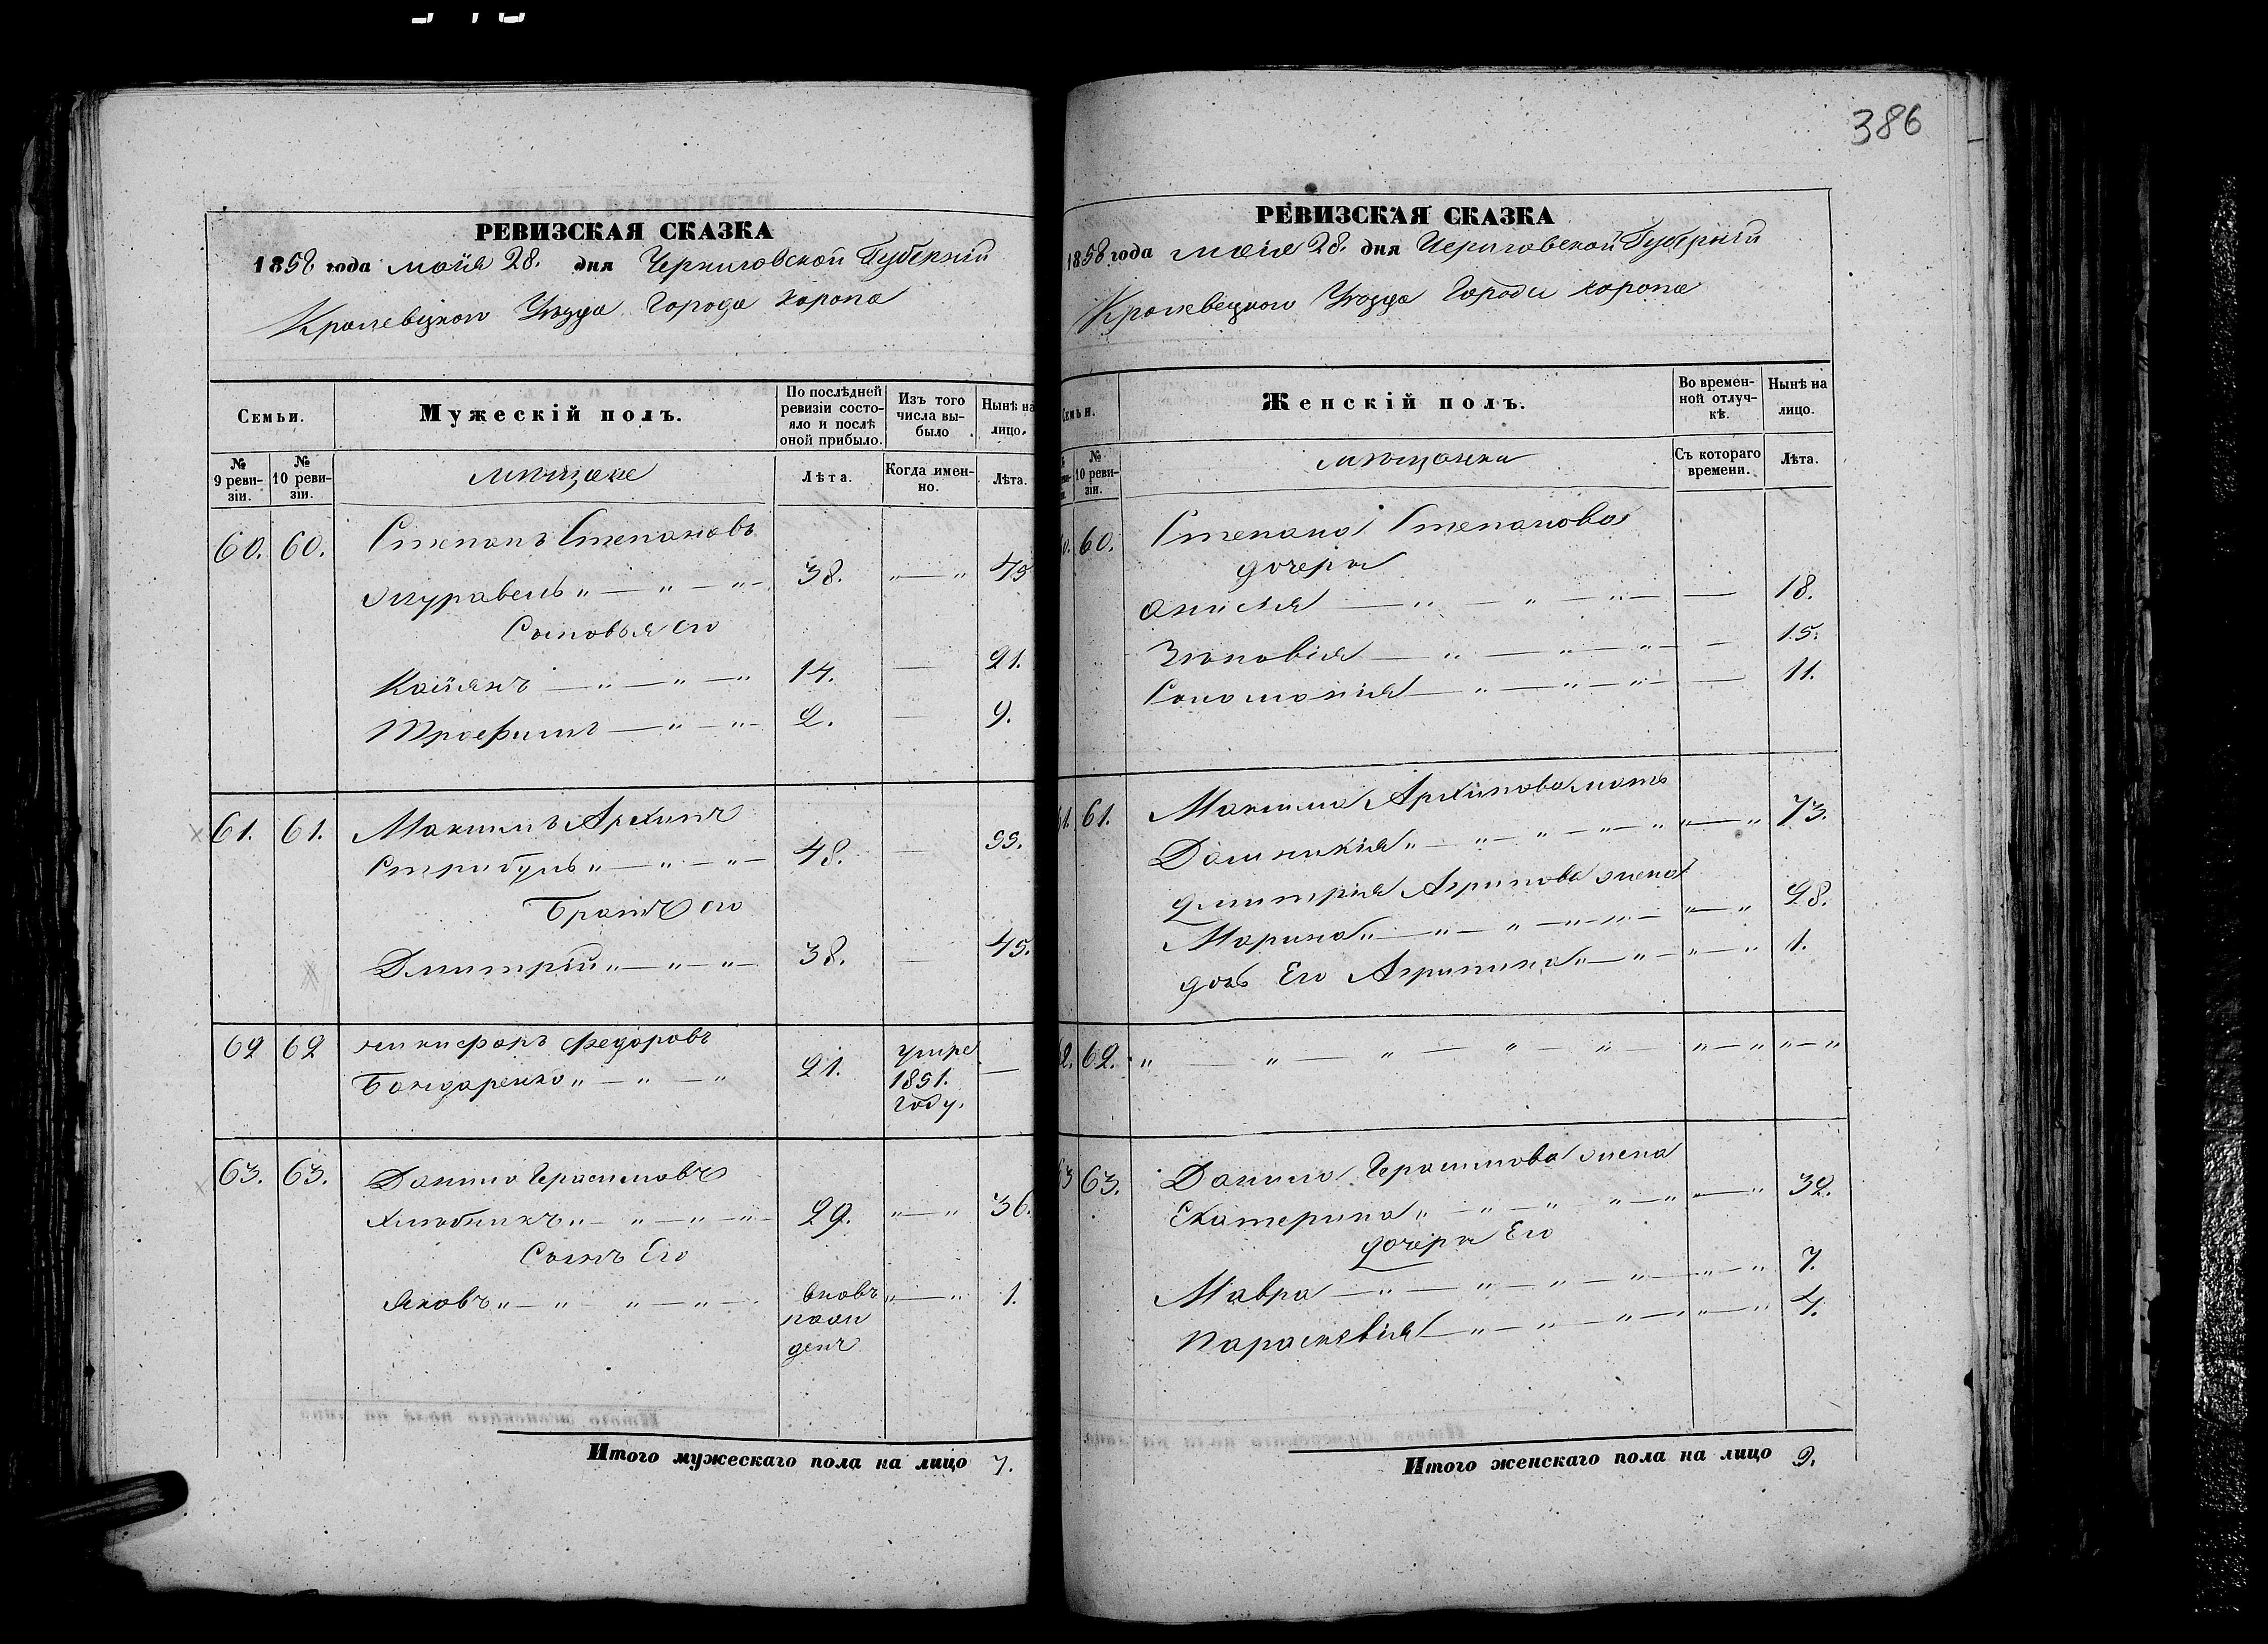 386
РЕВИЗСКАЯ СКАЗКА
1858 года маія 28. дня Черниговской Губерніи
Кролевецкого Уѣзда Города Коропа
Семьи.
Мужескій полъ.
По послѣдней ревизіи состояло и послѣ оной прибыло.
Изъ того числа выбыло
Нынѣ на лицо.
№ 9 ревизіи.
№ 10 ревизіи.
мѣщане
Лѣта.
Когда именно.
Лѣта.
60. 60. Степанъ Степановъ
Журавель „ — „ — „ — 38. „ — „ 45
Сыновья его
Касіянъ — „ — „ — „ 14. — 21.
Трофимъ — „ — „ — 2. — 9.
61. 61. Максимъ Архипъ
Стрибуль „ — „ — „ — 48. — 55.
Братъ его
Дмитрій „ — „ — „ — 38. — 45.
62 62 никифоръ Федоровъ
Бондаренко „ — „ — „ 21. умре 1851. году. —
63. 63. Данило Герасимовъ
Хлѣбникъ „ — „ — „ — „ — 29. „ — „ 36.
Сынъ Его
Яковъ „ — „ — „ — „ — вновь рожденъ „ — „ 1.
Итого мужескаго пола на лицо 7.
РЕВИЗСКАЯ СКАЗКА
1858 года маія 28. дня Черниговской Губерніи
Кролевецкого Уѣзда Города Коропа
Семьи.
Женскій полъ.
Во временной отлучкѣ.
Нынѣ на лицо.
№ 10 ревизіи.
мѣщанки
Съ котораго времени.
Лѣта.
60. 60. Степана Степанова
дочери
Анисія — „ — „ — „ — — 18.
Зиновія — „ — „ — „ — — 15.
Соломонія — „ — „ — „ — — 11.
61. 61. Максима Архипова мать
Домникія „ — „ — „ — „ — „ „ — „ 73.
Дмитрія Архипова жена
Марина „ — „ — „ — „ — „ — „ — „ 28.
дочь Его Агрипина „ — „ — „ — „ 1.
62. 62. „ — „ — „ — „ — „ — „ — „ „ — „
63 63. Данила Герасимова жена
Екатерина „ — „ — „ — „ — „ „ — „ 32.
дочери Его
Мавра — „ — „ — „ — „ — „ — „ 7.
Параскевія — „ — „ — „ — „ — „ 4.
Итого женскаго пола на лицо 9.